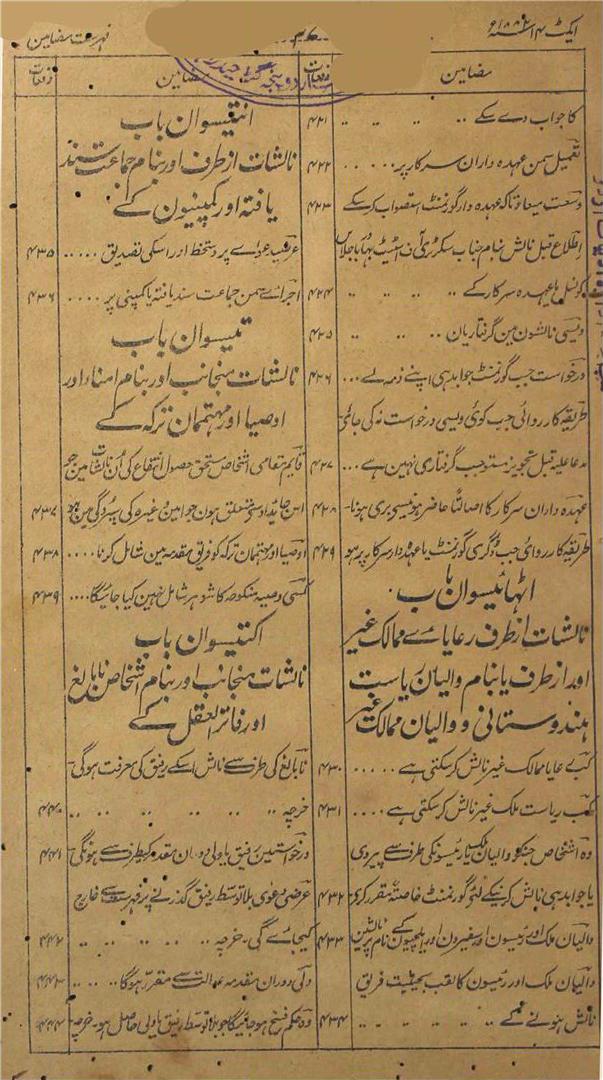 ایکٹ ۱۴ سنہ ۱۸۸۲ء
فہرست مضامین
مضامین
دفعات
کا جواب دے سکے .. .. .. ۴۲۱
تعمیل سمن عہدہ داران سرکار پر ..... ۴۲۲
وسعت میعاد تاکہ عہدہ دار گورنمنٹ استصواب کرسکے ۴۲۳
اطلاع قبل نالش بنام جناب سکرٹری آف اسٹیٹ بہادر باجلاس
کونسل یا عہدہ سرکار کے .. .. .. .. ۴۲۴
ویسی نالشون مین گرفتاریان .. .. .. ۴۲۵
درخواست جب گورنمنٹ جوابدہی اپنے ذمہ لے ... ۴۲۶
طریقہ کارروائی جب کوئی ویسی درخواست نہ کی جائے
مدعا علیہ قبل تجویز مستوجب گرفتاری نہین ہے ... ۴۲۷
عہدہ داران سرکار کا اصالتاً حاضر ہونیسے بری ہونا - ۴۲۸
طریقہ کارروائی جب ڈگری گورنمنٹ یا عہدہ دار سرکار پر ہو ۴۲۹
اٹھائیسوان باب
نالشات از طرف رعایاے ممالک غیر
اور از طرف یا بنام والیان ریاست
ہندوستانی و والیان ممالک غیر
کب رعایا ممالک غیر نالش کرسکتی ہے ..... ۴۳۰
کب ریاست ملک غیر نالش کرسکتی ہے .... ۴۳۱
وہ اشخاص جنکو والیان ملک یا رئیسونکی طرف سے پیروی
یا جوابدہی نالش کرنیکے لئے گورنمنٹ خاصۃً مقرر کرے ۴۳۲
والیان ملک اور رئیسون اور سفیرون اور ایلچیون کے نام پر نالشین ۴۳۳
والیان ملک اور رئیسون کا لقب بحیثیت فریق
نالش ہونے کے .. .. .. .. .. ۴۳۴
مضامین
دفعات
انتیسوان باب
نالشات از طرف اور بنام جماعت سند
یافتہ اور کمپنیون کے
عرضیدعوے پر دستخط اور اسکی تصدیق ..... ۴۳۵
اجراے سمن جماعت سند یافتہ یا کمپنی پر .... ۴۳۶
تیسوان باب
نالشات منجانب اور بنام امناء اور
اوصیا اور مہتممان ترکہ کے
قایم مقامی اشخاص مستحق حصول انتفاع کی اُن نالشات مین جو
اس جائداد سے متعلق ہون جو امین وغیرہ کی سپردگی مین ہو ۴۳۷
اوصیا اور مہتممان ترکہ کو فریق مقدمہ مین شامل کرنا .... ۴۳۸
کسی وصیہ منکوحہ کا شوہر شامل نہین کیا جائیگا .... ۴۳۹
اکتیسوان باب
نالشات منجانب اور بنام اشخاص نابالغ
اور فاتر العقل کے
نابالغ کی طرف سے نالش اسکے رفیق کی معرفت ہوگی -
خرچہ .. .. .. .. .. ۴۴۰
درخواستین رفیق یا ولی دوران مقدمہ کیطرف سے ہونگی - ۴۴۱
عرضی دعوی بلا توسط رفیق گذرنے پر فہرست سے خارج
کیجائے گی - خرچہ .. .. .. .. ۴۴۲
ولی دوران مقدمہ عدالت سے مقرر ہوگا ..... ۴۴۳
وہ حکم فسخ ہو جائیگا جو بلا توسط رفیق یا ولی حاصل ہو - خرچہ - ۴۴۴